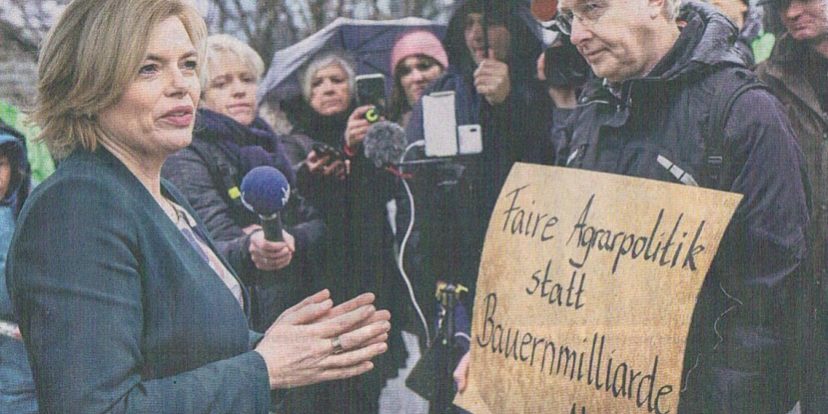 Faire Agrarpolitik
statt
Bauernmilliarde